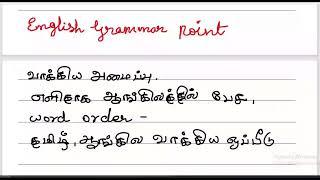 English Grammar Point
வாக்கிய அமைப்பு.
எளிதாக ஆங்கிலத்தில் பேச,
word order -
தமிழ், ஆங்கில வாக்கிய ஒப்பீடு